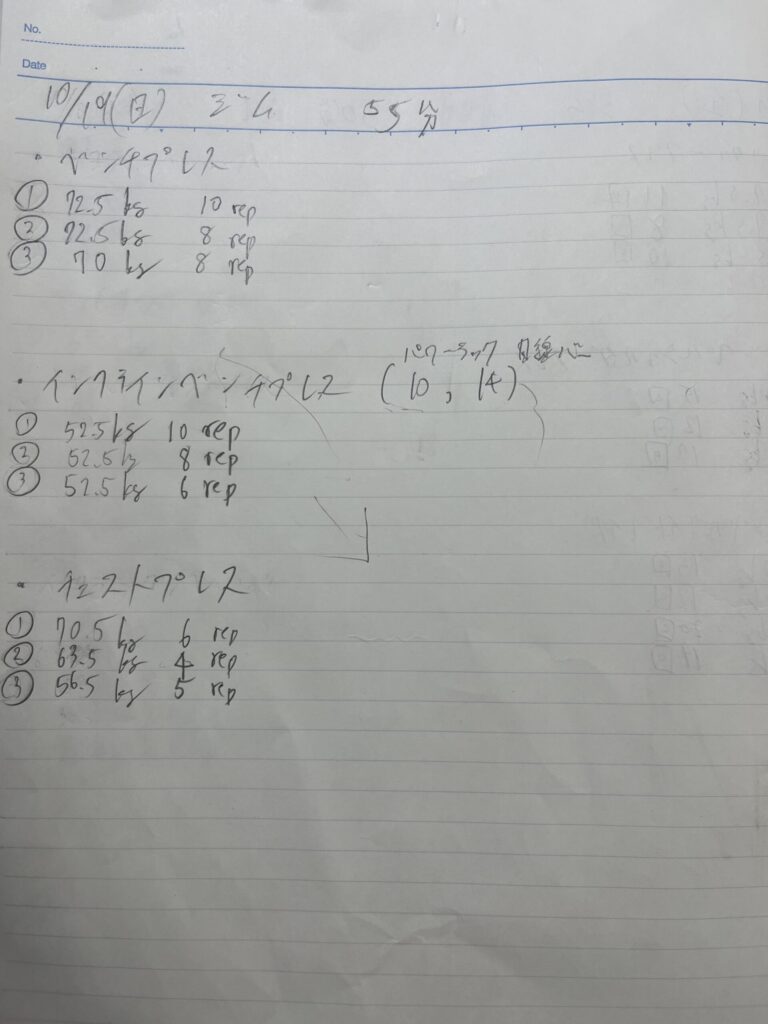 No.
Date
10/19(日) ジム 55分
・ベンチプレス
① 72.5 kg 10 rep
② 72.5 kg 8 rep
③ 70 kg 8 rep
パワーラック 目線バー
・インクラインベンチプレス (10, 14)
① 52.5 kg 10 rep
② 52.5 kg 8 rep
③ 52.5 kg 6 rep
・チェストプレス
① 70.5 kg 6 rep
② 63.5 kg 4 rep
③ 56.5 kg 5 rep